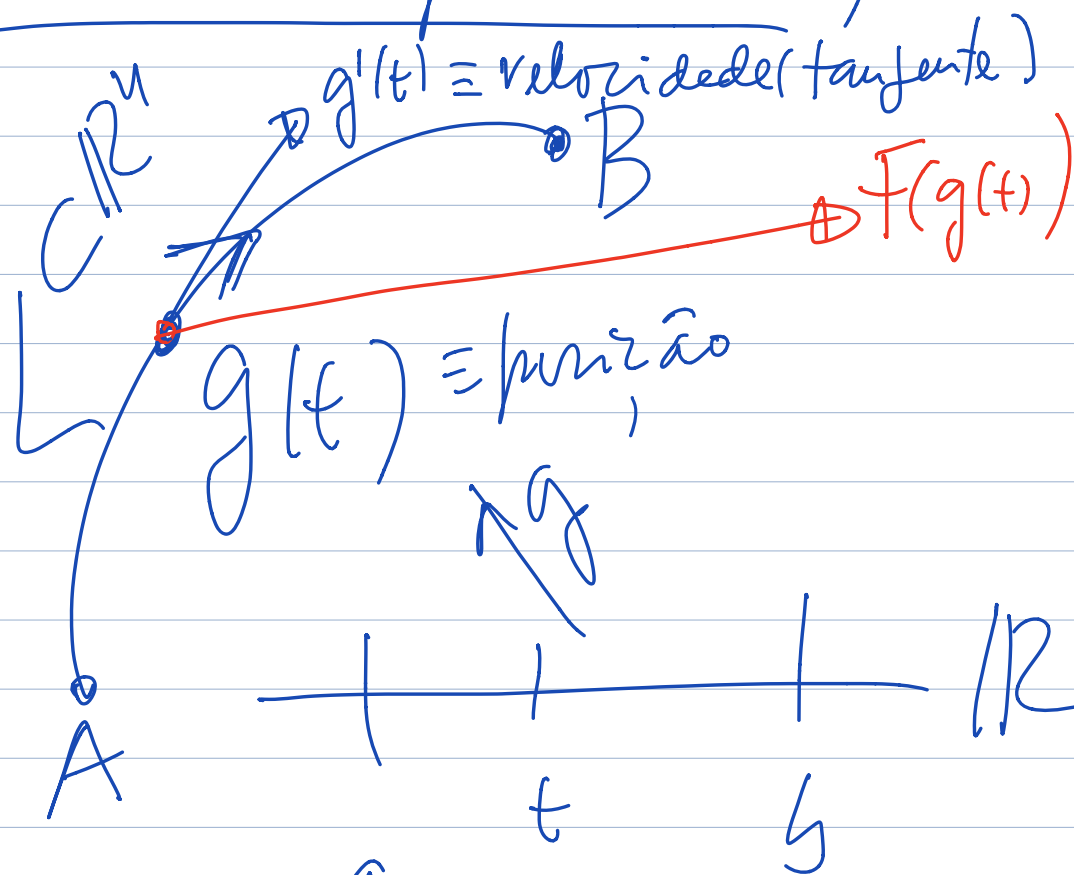 g'(t) ≡ velocidade (tangente)
C ℝⁿ
B
F(g(t))
L
g(t) ≡ função
g
ℝ
A
t
b